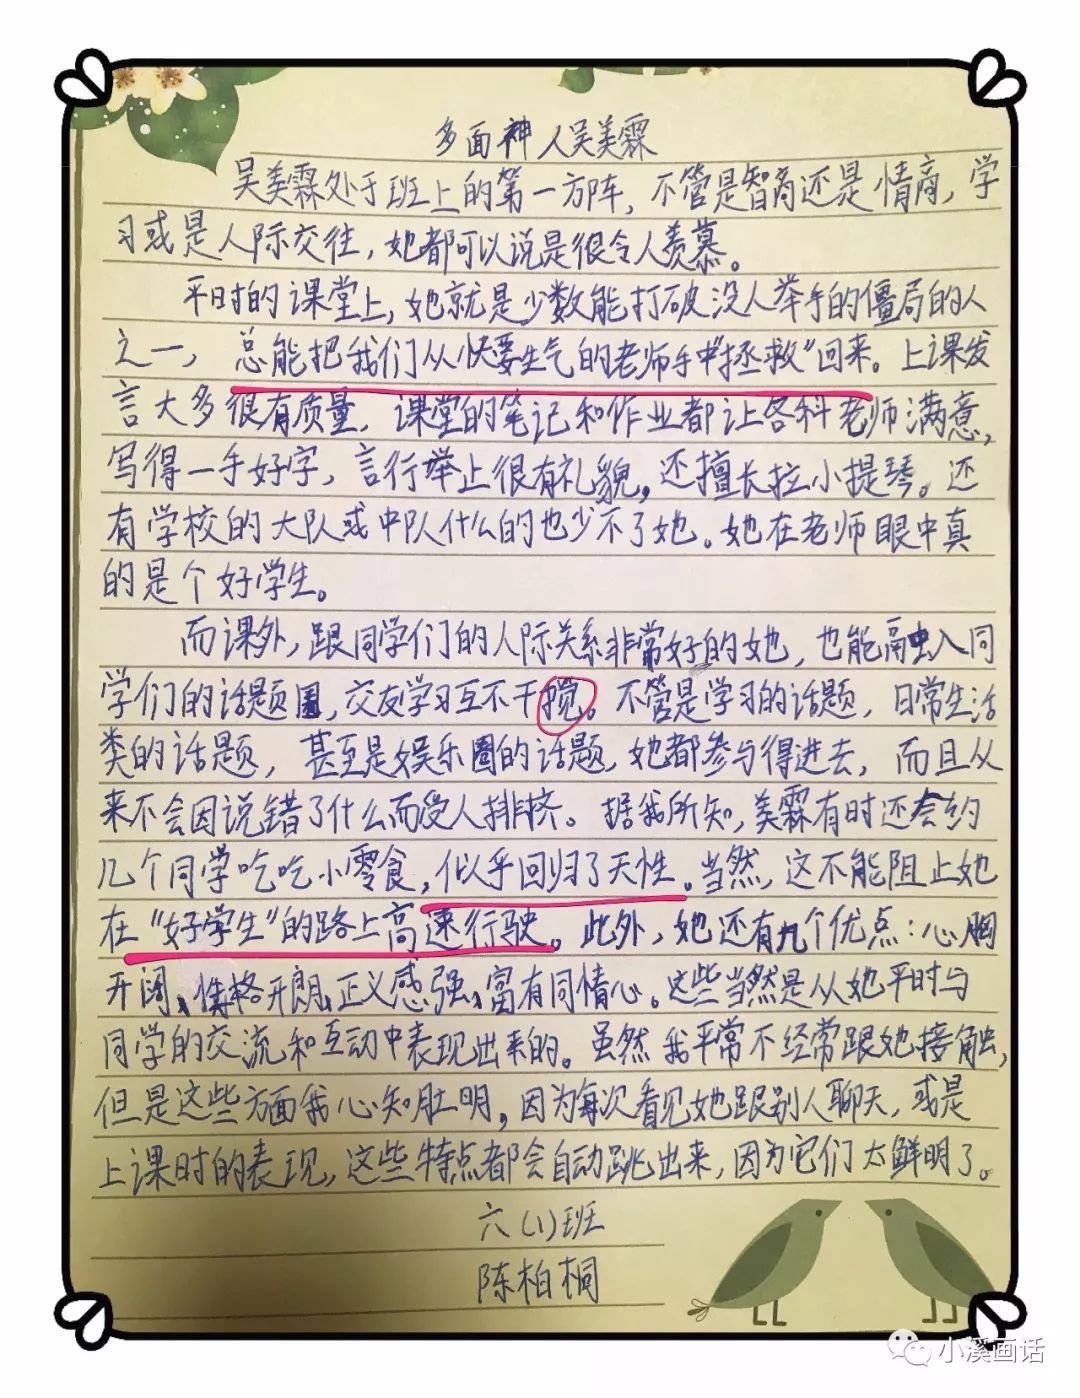 多面神人吴美霖
吴美霖处于班上的第一方阵，不管是智商还是情商，学
习或是人际交往，她都可以说是很令人羡慕。
平时的课堂上，她就是少数能打破没人举手的僵局的人
之一，总能把我们从快要生气的老师手中"拯救"回来。上课发
言大多很有质量，课堂的笔记和作业都让各科老师满意，
写得一手好字，言行举止很有礼貌，还擅长拉小提琴。还
有学校的大队或中队什么的也少不了她。她在老师眼中真
的是个好学生。
而课外，跟同学们的人际关系非常好的她，也能融入同
学们的话题圈，交友学习互不干搅。不管是学习的话题，日常生活
类的话题，甚至是娱乐圈的话题，她都参与得进去，而且从
来不会因说错了什么而受人排挤。据我所知，美霖有时还会约
几个同学吃吃小零食，似乎回归了天性。当然，这不能阻止她
在"好学生"的路上高速行驶。此外，她还有九个优点：心胸
开阔、性格开朗、正义感强、富有同情心。这些当然是从她平时与
同学的交流和互动中表现出来的。虽然我平常不经常跟她接触，
但是这些方面我心知肚明，因为每次看见她跟别人聊天，或是
上课时的表现，这些特点都会自动跳出来，因为它们太鲜明了。
六(1)班
陈柏桐
小溪画话